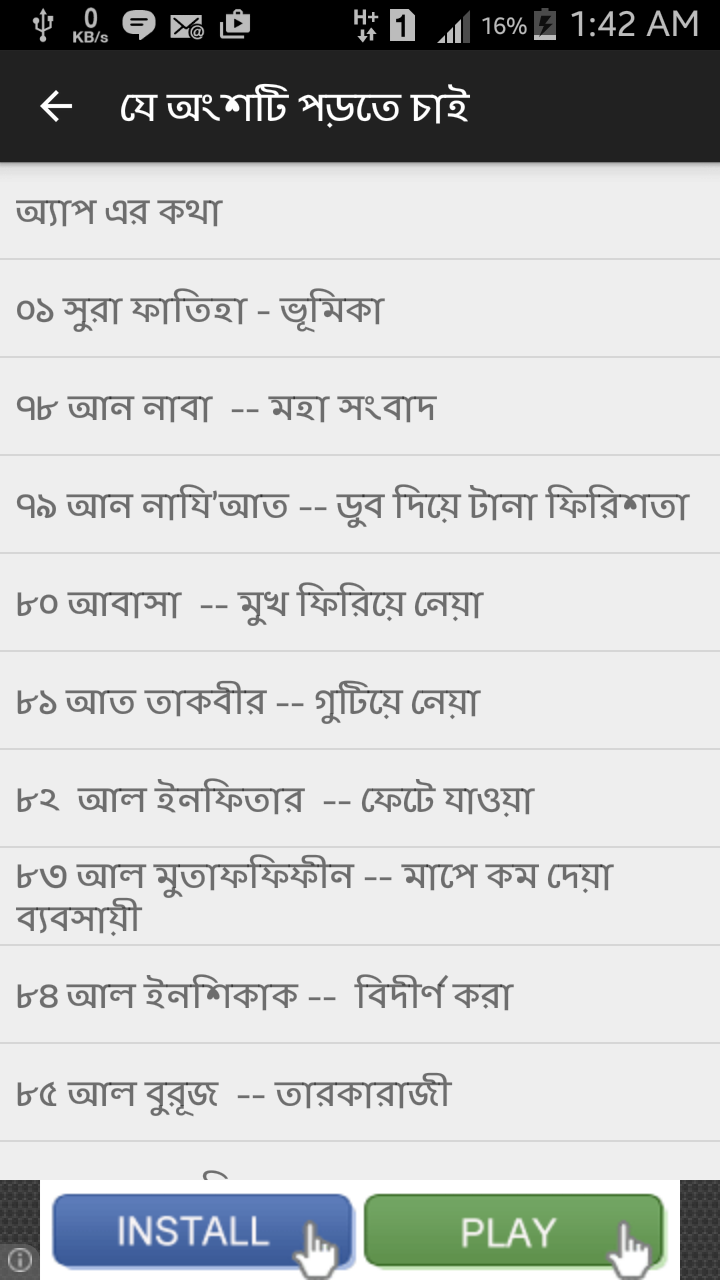 0
KB/s
H+
1
16%
1:42 AM
যে অংশটি পড়তে চাই
অ্যাপ এর কথা
০১ সুরা ফাতিহা - ভূমিকা
৭৮ আন নাবা -- মহা সংবাদ
৭৯ আন নাযি'আত -- ডুব দিয়ে টানা ফিরিশতা
৮০ আবাসা -- মুখ ফিরিয়ে নেয়া
৮১ আত তাকবীর -- গুটিয়ে নেয়া
৮২ আল ইনফিতার -- ফেটে যাওয়া
৮৩ আল মুতাফফিফীন -- মাপে কম দেয়া
ব্যবসায়ী
৮৪ আল ইনশিকাক -- বিদীর্ণ করা
৮৫ আল বুরূজ -- তারকারাজী
INSTALL
PLAY